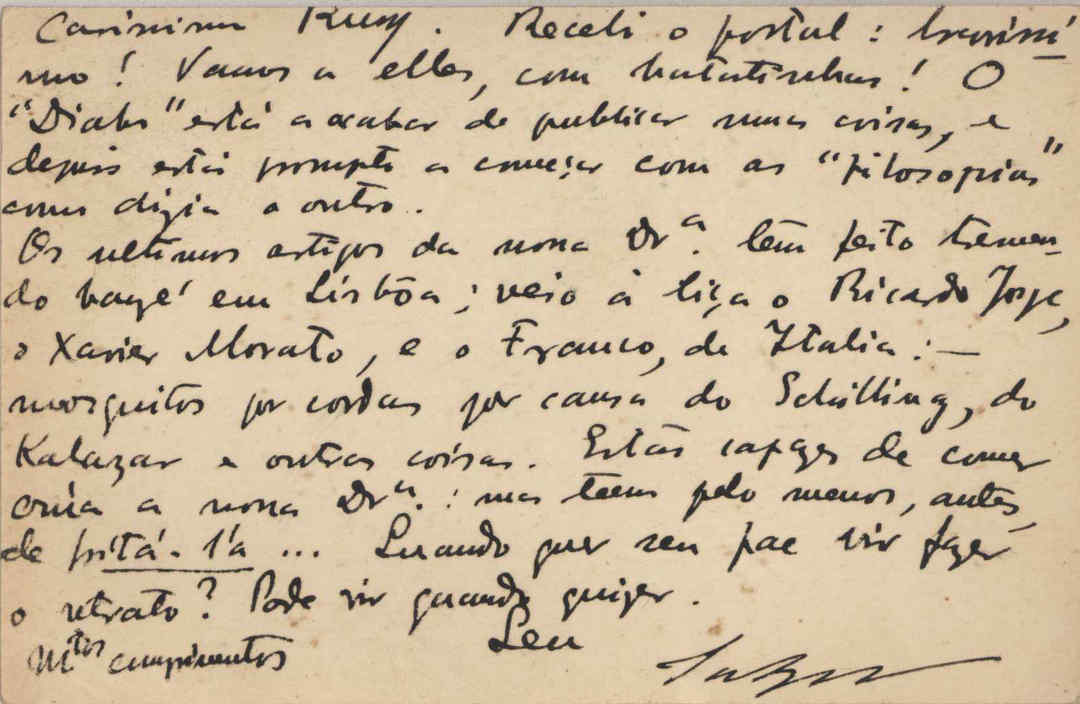 Carissimo Ruy. Recebi o postal: bravissi-
mo! Vamos a elles, com batatinhas! O
"Diabo" está a acabar de publicar umas coisas, e
depois está prompto a começar com as "filosofias"
como dizia o outro.
Os ultimos artigos da nossa Drª. têm feito tremen-
do banzé em Lisbôa; veio á liça o Ricardo Jorge,
o Xavier Morato, e o Franco, de Italia: —
mosquitos por cordas por causa do Schilling, do
Kalazar e outras coisas. Estão capazes de comer
crúa a nossa Drª.: mas teem pelo menos, antes,
de fritá-l'a ... Quando quer seu pae vir fazer
o retrato? Pode vir quando quizer.
Mtos cumprimentos Seu